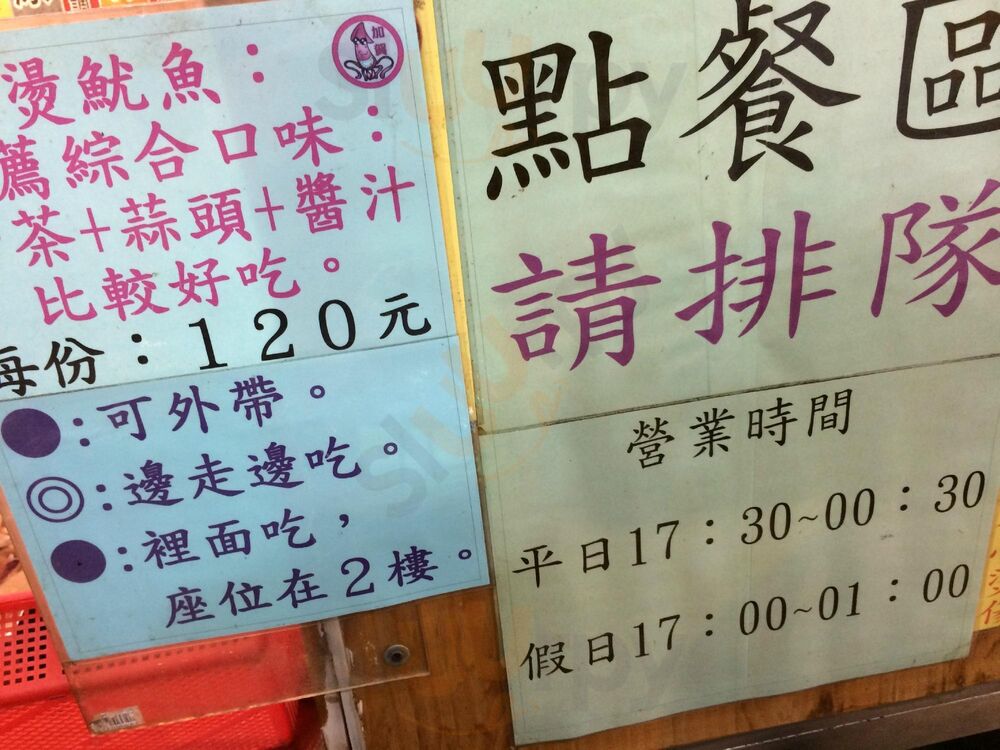 加賀
燙魷魚：
薦綜合口味：
茶+蒜頭+醬汁
比較好吃。
每份：120元
●：可外帶。
◎：邊走邊吃。
●：裡面吃，
座位在2樓。
點餐區
請排隊
營業時間
平日17：30~00：30
假日17：00~01：00